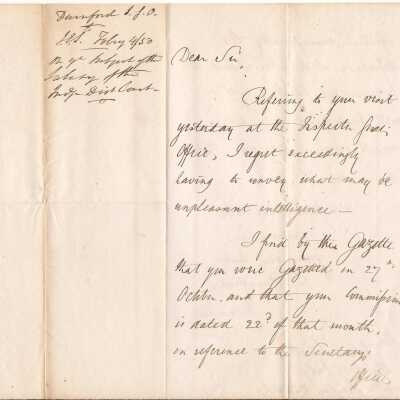 Durnford
Feby 4/50
on ye subject of the
Salary of the
Judge Dist Court
Dear Sir,
Referring to your visit
yesterday at the Inspector Genl's
Office, I regret exceedingly
having to convey what may be
unpleasant intelligence —
I find by the Gazette
that you were Gazetted on 27th
October and that your Commission
is dated 22d of that month,
on reference to the Secretary's
Office